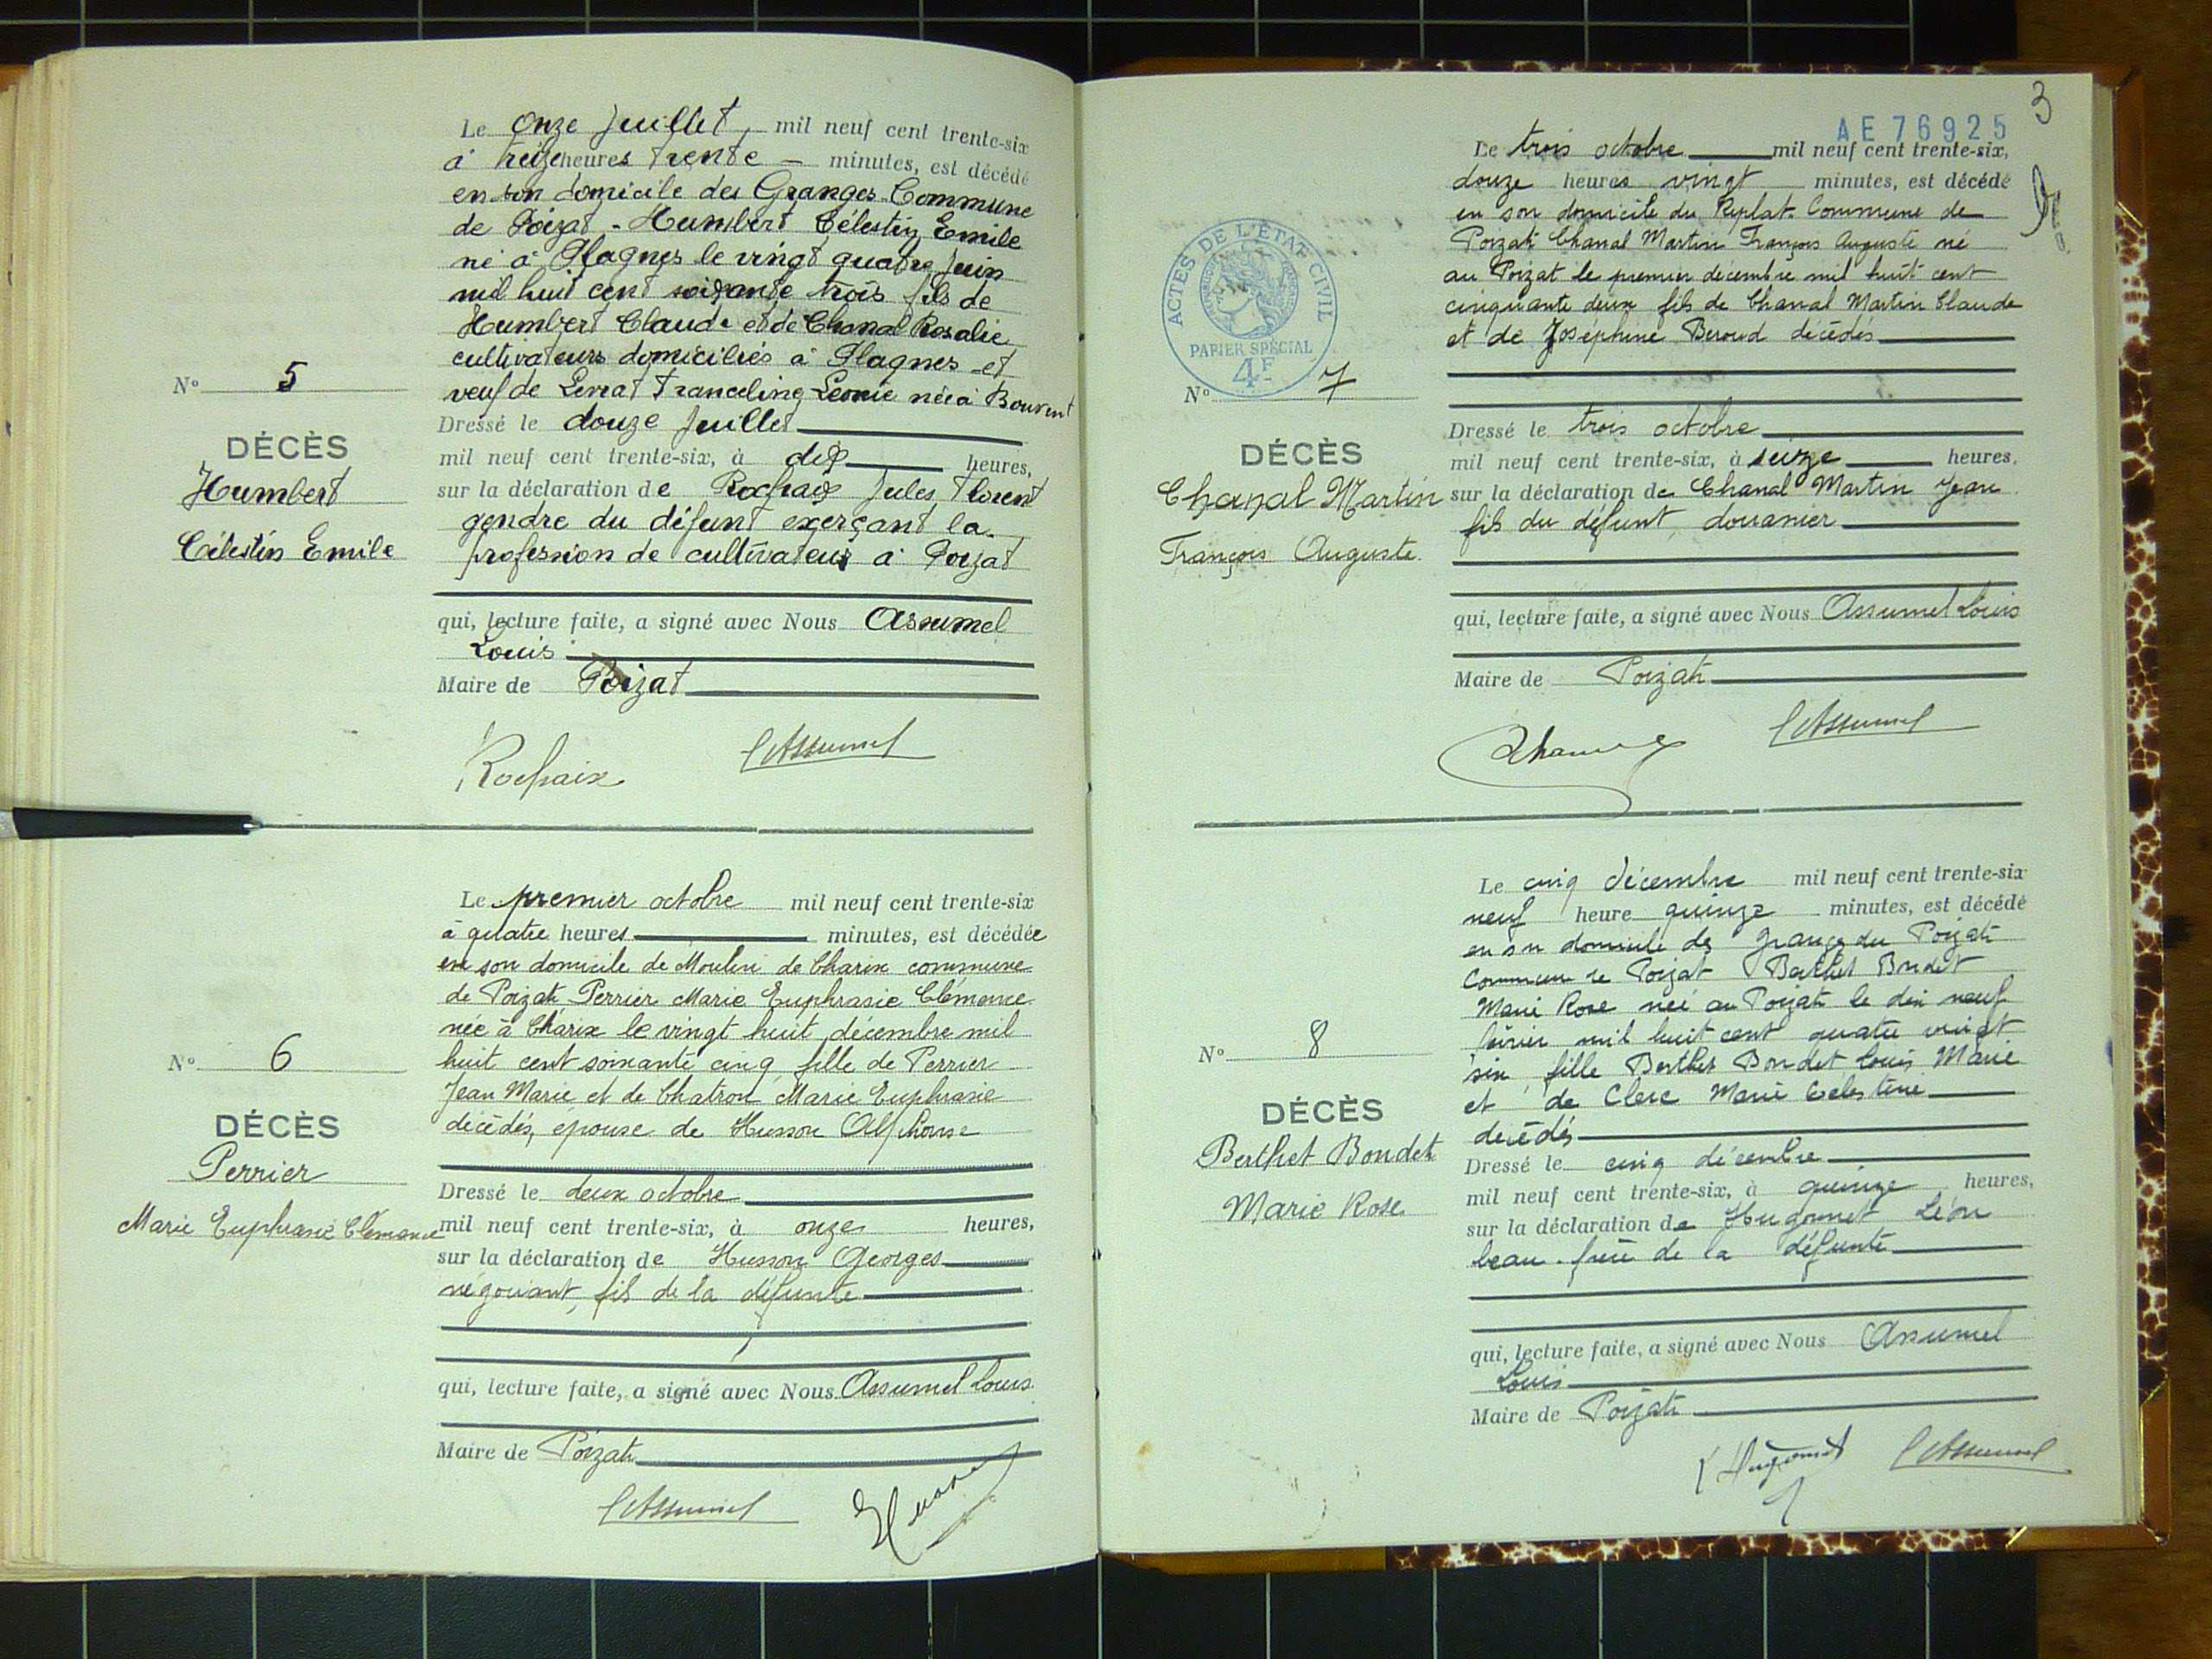 N° 5
DÉCÈS
Humbert
Célestin Emile
Le onze Juillet, mil neuf cent trente-six
à treize heures trente — minutes, est décédé
en son domicile des Granges - Commune
de Poizat - Humbert Célestin Emile
né à Plagnes le vingt quatre Juin
mil huit cent soixante trois fils de
Humbert Claude et de Chanal Rosalie
cultivateurs domiciliés à Plagnes et
veuf de Levrat Franceline Leonie née à Bouvent
Dressé le douze Juillet
mil neuf cent trente-six, à dix heures,
sur la déclaration de Rochaix Jules Florent
gendre du défunt exerçant la
profession de cultivateur à Poizat
qui, lecture faite, a signé avec Nous Assumel
Louis
Maire de Poizat
Rochaix LAssumel
N° 6
DÉCÈS
Perrier
Marie Euphrasie Clémence
Le premier octobre mil neuf cent trente-six
à quatre heures minutes, est décédée
en son domicile de Moulin de Charix commune
de Poizat Perrier Marie Euphrasie Clémence
née à Charix le vingt huit décembre mil
huit cent soixante cinq fille de Perrier
Jean Marie et de Chatron Marie Euphrasie
décédés, épouse de Husson Alphonse
Dressé le deux octobre
mil neuf cent trente-six, à onze heures,
sur la déclaration de Husson Georges
négociant, fils de la défunte
qui, lecture faite, a signé avec Nous Assumel Louis
Maire de Poizat
LAssumel Husson
3
AE 76925
ACTES DE L'ÉTAT CIVIL
PAPIER SPÉCIAL
4F
N° 7
DÉCÈS
Chanal Martin
François Auguste
Le trois octobre mil neuf cent trente-six,
douze heures vingt minutes, est décédé
en son domicile du Replat Commune de
Poizat Chanal Martin François Auguste né
au Poizat le premier décembre mil huit cent
cinquante deux fils de Chanal Martin Claude
et de Joséphine Beroud décédés
Dressé le trois octobre
mil neuf cent trente-six, à seize heures,
sur la déclaration de Chanal Martin Jean
fils du défunt, douanier
qui, lecture faite, a signé avec Nous Assumel Louis
Maire de Poizat
LAssumel
N° 8
DÉCÈS
Berthet Bondet
Marie Rose
Le cinq décembre mil neuf cent trente-six
neuf heure quinze minutes, est décédé
en son domicile des granges du Poizat
commune de Poizat Berthet Bondet
Marie Rose née au Poizat le dix neuf
février mil huit cent quatre vingt
six, fille Berthet Bondet Louis Marie
et de Clerc Marie Celestine
décédés
Dressé le cinq décembre
mil neuf cent trente-six, à quinze heures,
sur la déclaration de Hugonnet Léon
beau-frère de la défunte
qui, lecture faite, a signé avec Nous Assumel
Louis
Maire de Poizat
L Hugonnet LAssumel